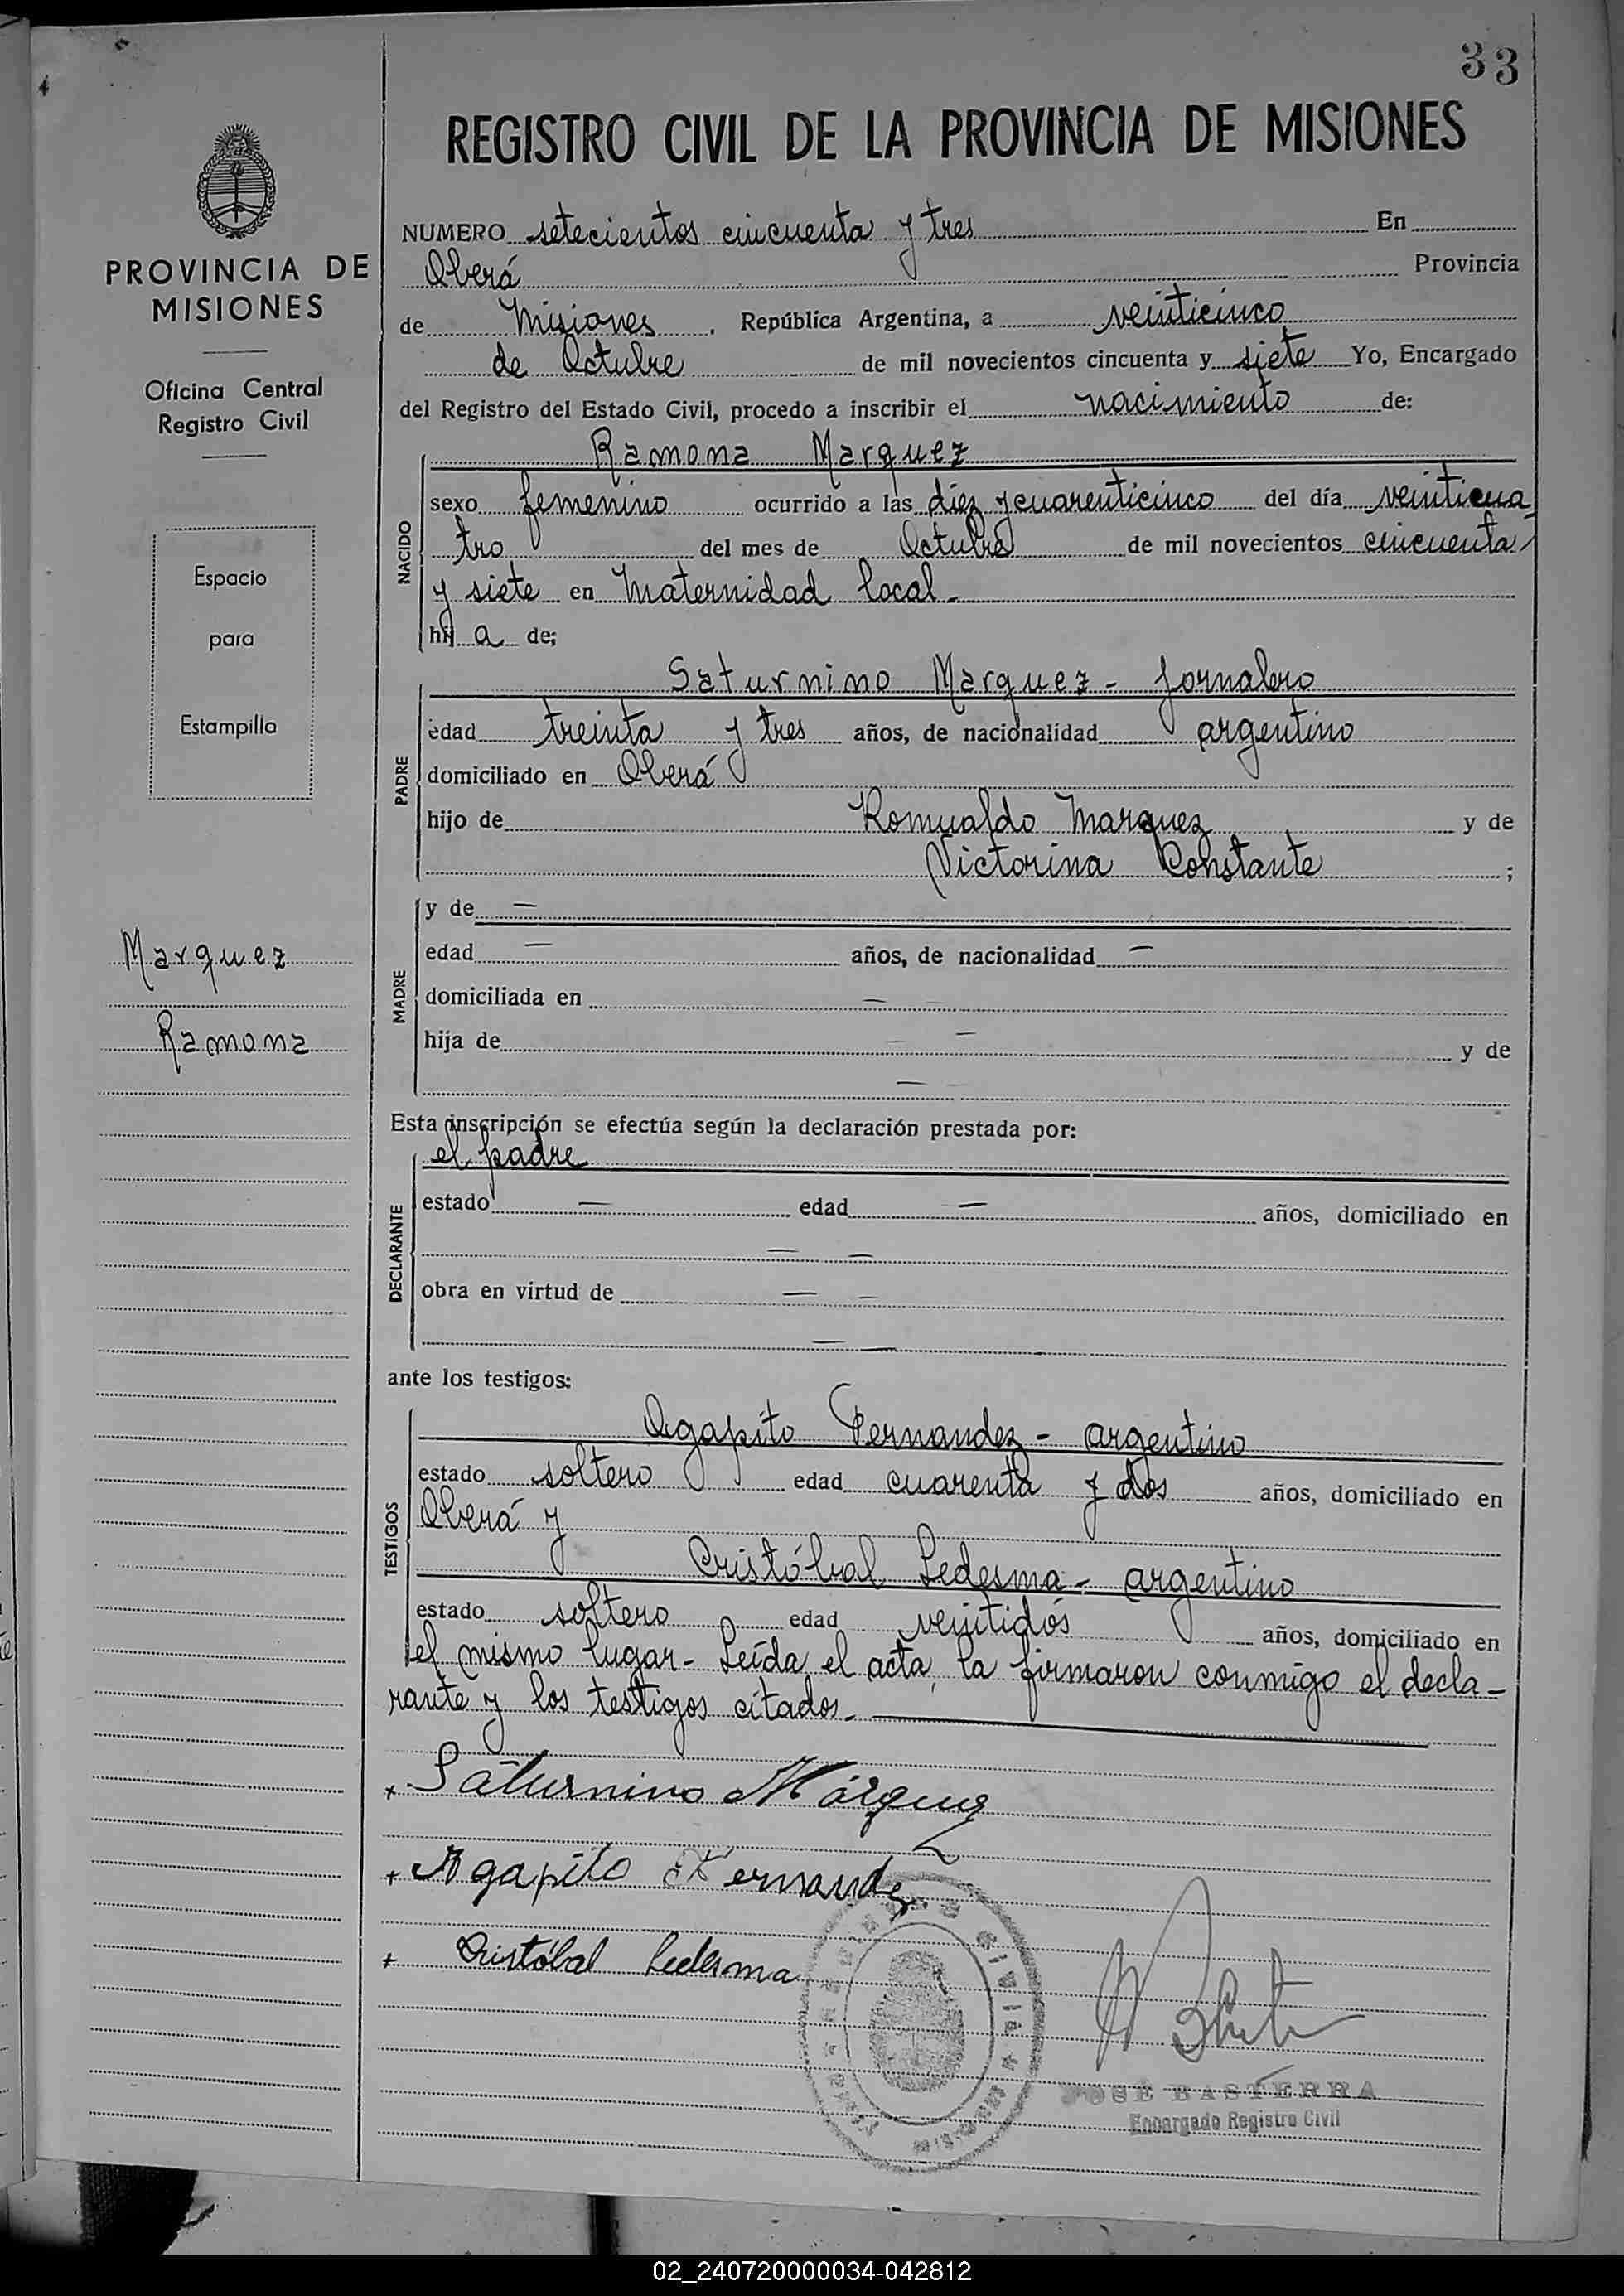 33
REGISTRO CIVIL DE LA PROVINCIA DE MISIONES
PROVINCIA DE
MISIONES
Oficina Central
Registro Civil
Espacio
para
Estampilla
Marquez
Ramona
NUMERO setecientos cincuenta y tres En
Oberá Provincia
de Misiones . República Argentina, a veinticinco
de Octubre de mil novecientos cincuenta y siete Yo, Encargado
del Registro del Estado Civil, procedo a inscribir el nacimiento de:
NACIDO
Ramona Marquez
sexo femenino ocurrido a las diez y cuarenticinco del día veinticua
tro del mes de Octubre de mil novecientos cincuenta
y siete en Maternidad local.
hij a de;
PADRE
Saturnino Marquez - jornalero
edad treinta y tres años, de nacionalidad argentino
domiciliado en Oberá
hijo de Romualdo Marquez y de
Victorina Constante ;
MADRE
y de —
edad — años, de nacionalidad —
domiciliada en —
hija de — y de
—
Esta inscripción se efectúa según la declaración prestada por:
DECLARANTE
el padre
estado — edad — años, domiciliado en
— —
obra en virtud de — —
— —
ante los testigos:
TESTIGOS
Agapito Fernandez - argentino
estado soltero edad cuarenta y dos años, domiciliado en
Oberá y
Cristóbal Ledesma - argentino
estado soltero edad veintidós años, domiciliado en
el mismo lugar - Leída el acta, la firmaron conmigo el decla-
rante y los testigos citados.
+ Saturnino Márquez
+ Agapito Fernandez
+ Cristóbal Ledesma
JOSE BASTERRA
Encargado Registro Civil
02_240720000034-042812